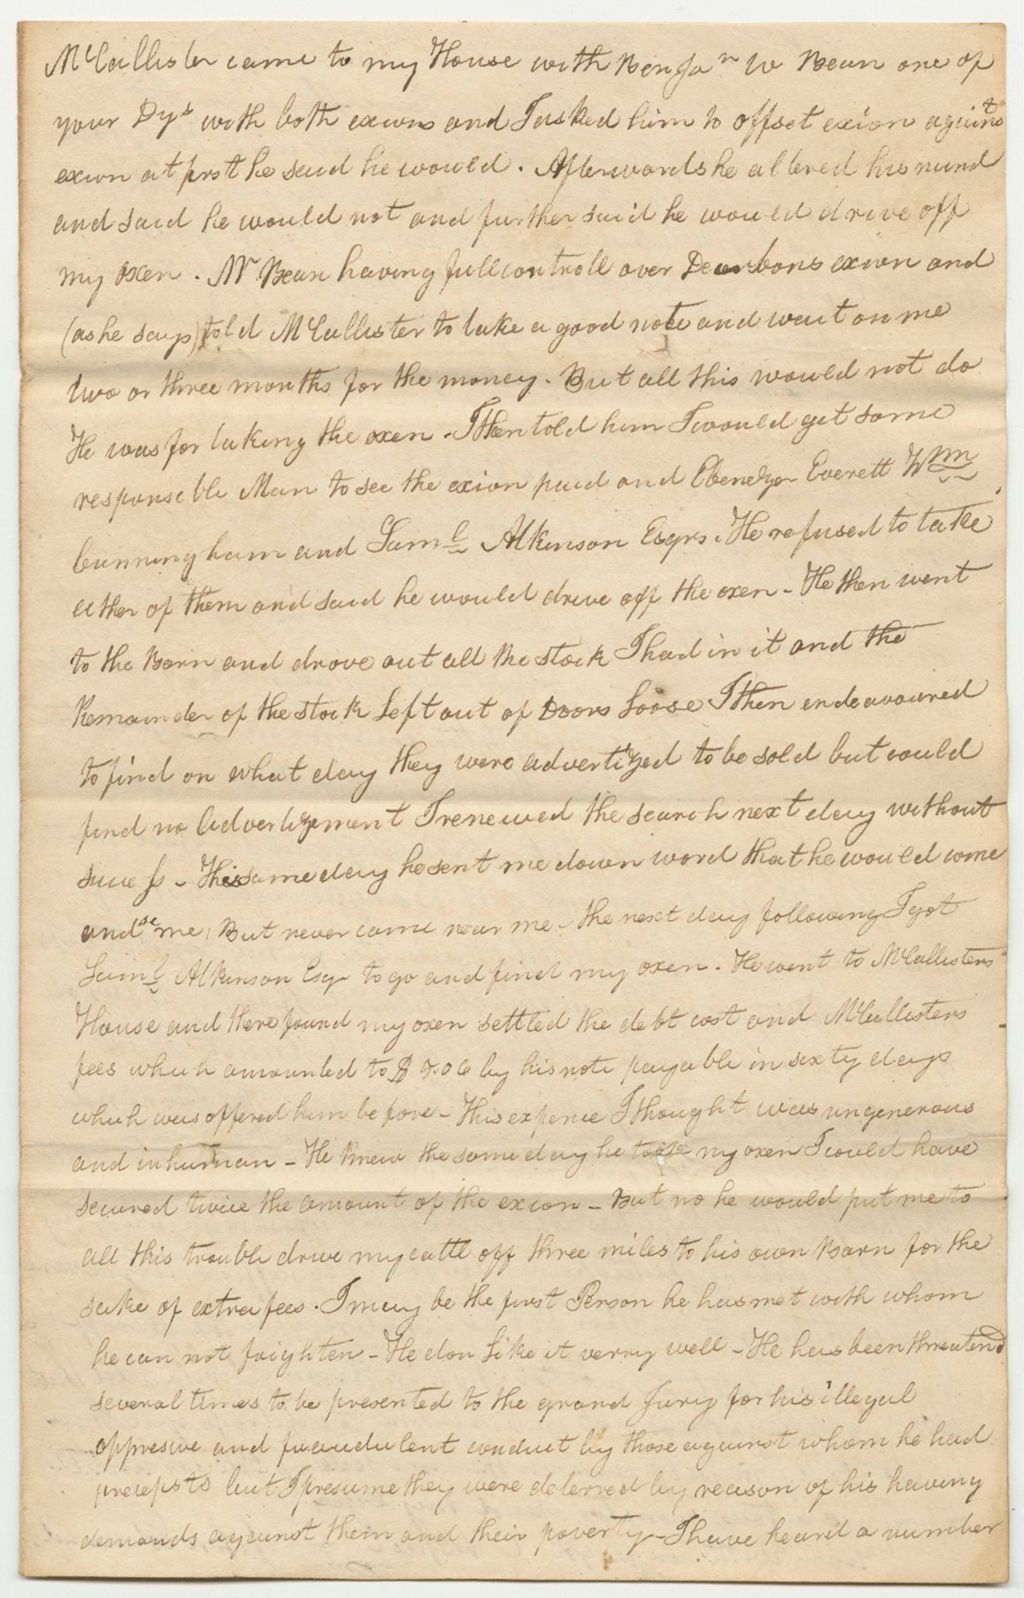 McCallister came to my House with Benjan W Bean one of
your Dys with both exions and I asked him to offset exion againt
exion at first he said he would. Afterwards he altered his mind
and said he would not and further said he would drive off
my oxen. Mr Bean having full controll over Dearbons exion and
(as he says) told McCallister to take a good note and wait on me
two or three months for the money. But all this would not do
He was for taking the oxen. I then told him I would get some
responseble Man to see the exion paid and Ebenezer Everett Wm
Cunningham and Saml Atkinson Esqrs. He refused to take
either of them and said he would drive off the oxen - He then went
to the Barn and drove out all the stock I had in it and the
Remainder of the stock left out of Doors loose I then endeavoured
to find on what day they were advertized to be sold but could
find no Advertizement I renewed the search next day without
success - This same day he sent me down word that he would come
and se me, But never came near me - the next day following I got
Saml Atkinson Esqr to go and find my oxen. He went to McCallisters
House and there found my oxen settled the debt cost and McCallisters
fees which amounted to $ 7.06 by his note payable in sixty days
which was offered him before - This expence I thought was ungenerous
and inhuman - He knew the same day he took my oxen I could have
secured twice the amount of the exion - But no he would put me to
all this trouble drive my cattl off three miles to his own Barn for the
sake of extra fees. I may be the first Person he has met with whom
he can not frighten - He don like it verry well - He has been threatend
several times to be presented to the grand Jury for his illegal
oppresive and fraudulent conduct by those against whom he had
precepts but I presume they were deterred by reason of his having
demands against them and their poverty - I have heard a number